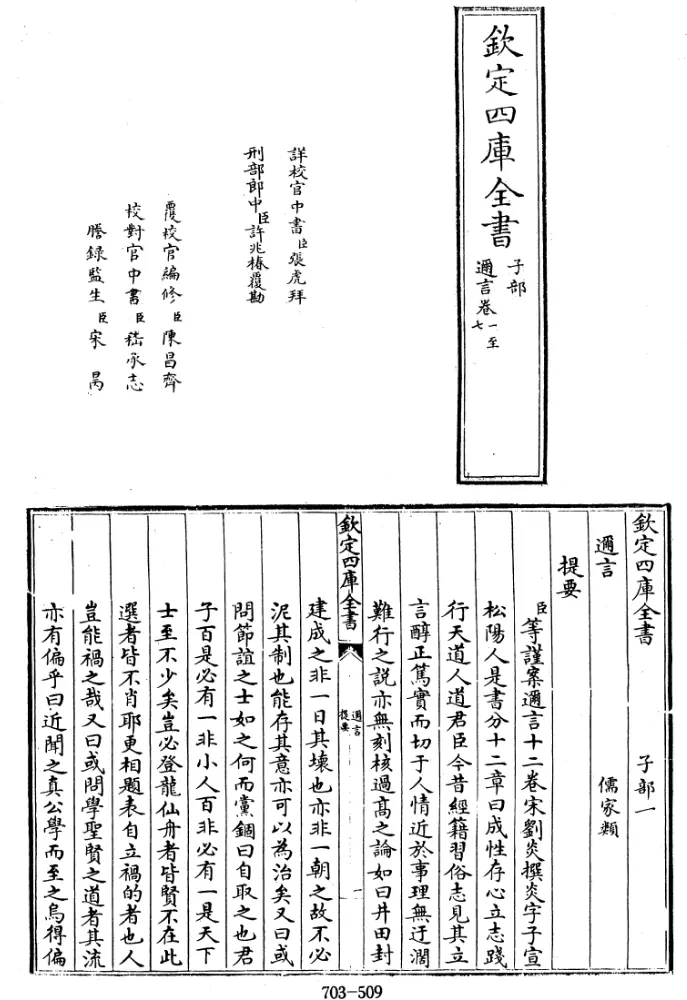 欽定四庫全書
子部
邇言卷一至
七
詳校官中書臣張虎拜
刑部郎中臣許兆椿覆勘
覆校官編修臣陳昌齊
校對官中書臣嵇承志
謄録監生臣宋昺
欽定四庫全書
子部一
邇言
儒家類
提要
臣等謹案邇言十二卷宋劉炎撰炎字子宣
松陽人是書分十二章曰成性存心立志踐
行天道人道君臣今昔經籍習俗志見其立
言醇正篤實而切于人情近於事理無迂濶
難行之説亦無刻核過髙之論如曰井田封
欽定四庫全書
邇言
提要
一
建成之非一日其壞也亦非一朝之故不必
泥其制也能存其意亦可以為治矣又曰或
問節誼之士如之何而黨錮曰自取之也君
子百是必有一非小人百非必有一是天下
士至不少矣豈必登龍仙舟者皆賢不在此
選者皆不肖耶更相題表自立禍的者也人
豈能禍之哉又曰或問學聖賢之道者其流
亦有偏乎曰近聞之真公學而至之烏得偏
703-509